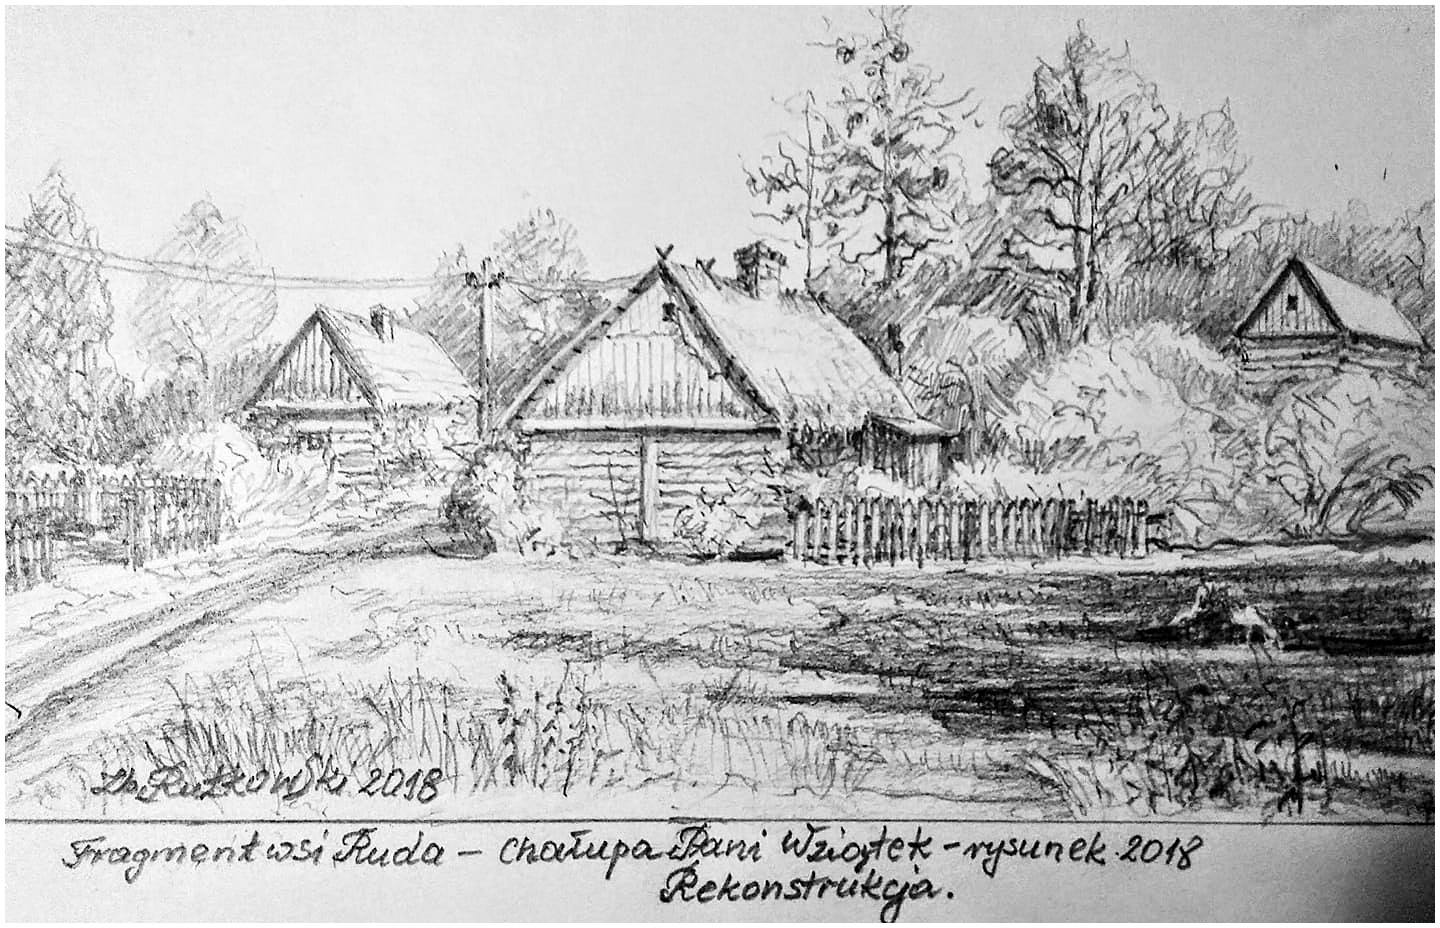 Zb. Rutkowski 2018
Fragment wsi Ruda – chałupa Pani Wziątek – rysunek 2018
Rekonstrukcja.